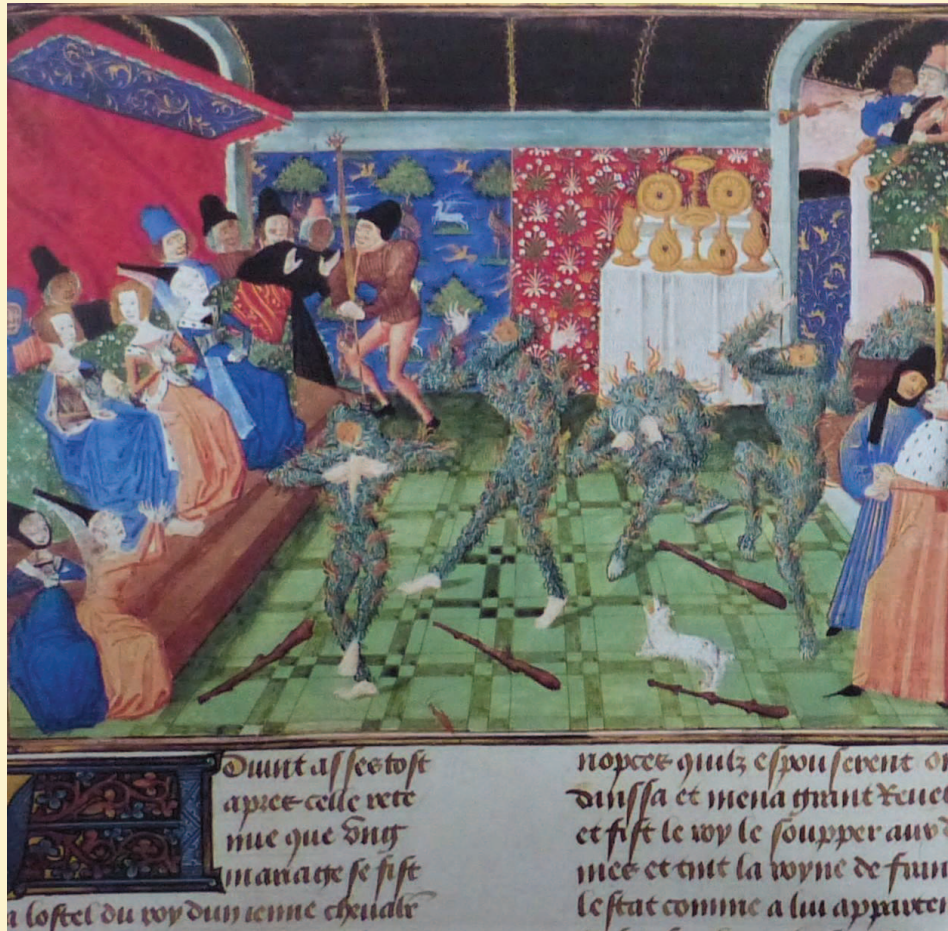 Duint asses tost
apres celle rete
nue que vng
mariage se fist
a lostel du roy dun ienne cheualr
nopces quilz espouserent on
dinssa et mena grant Reuel
et fist le roy le soupper aux d
mes et tint la royne de fran
lestat comme a lui apparten